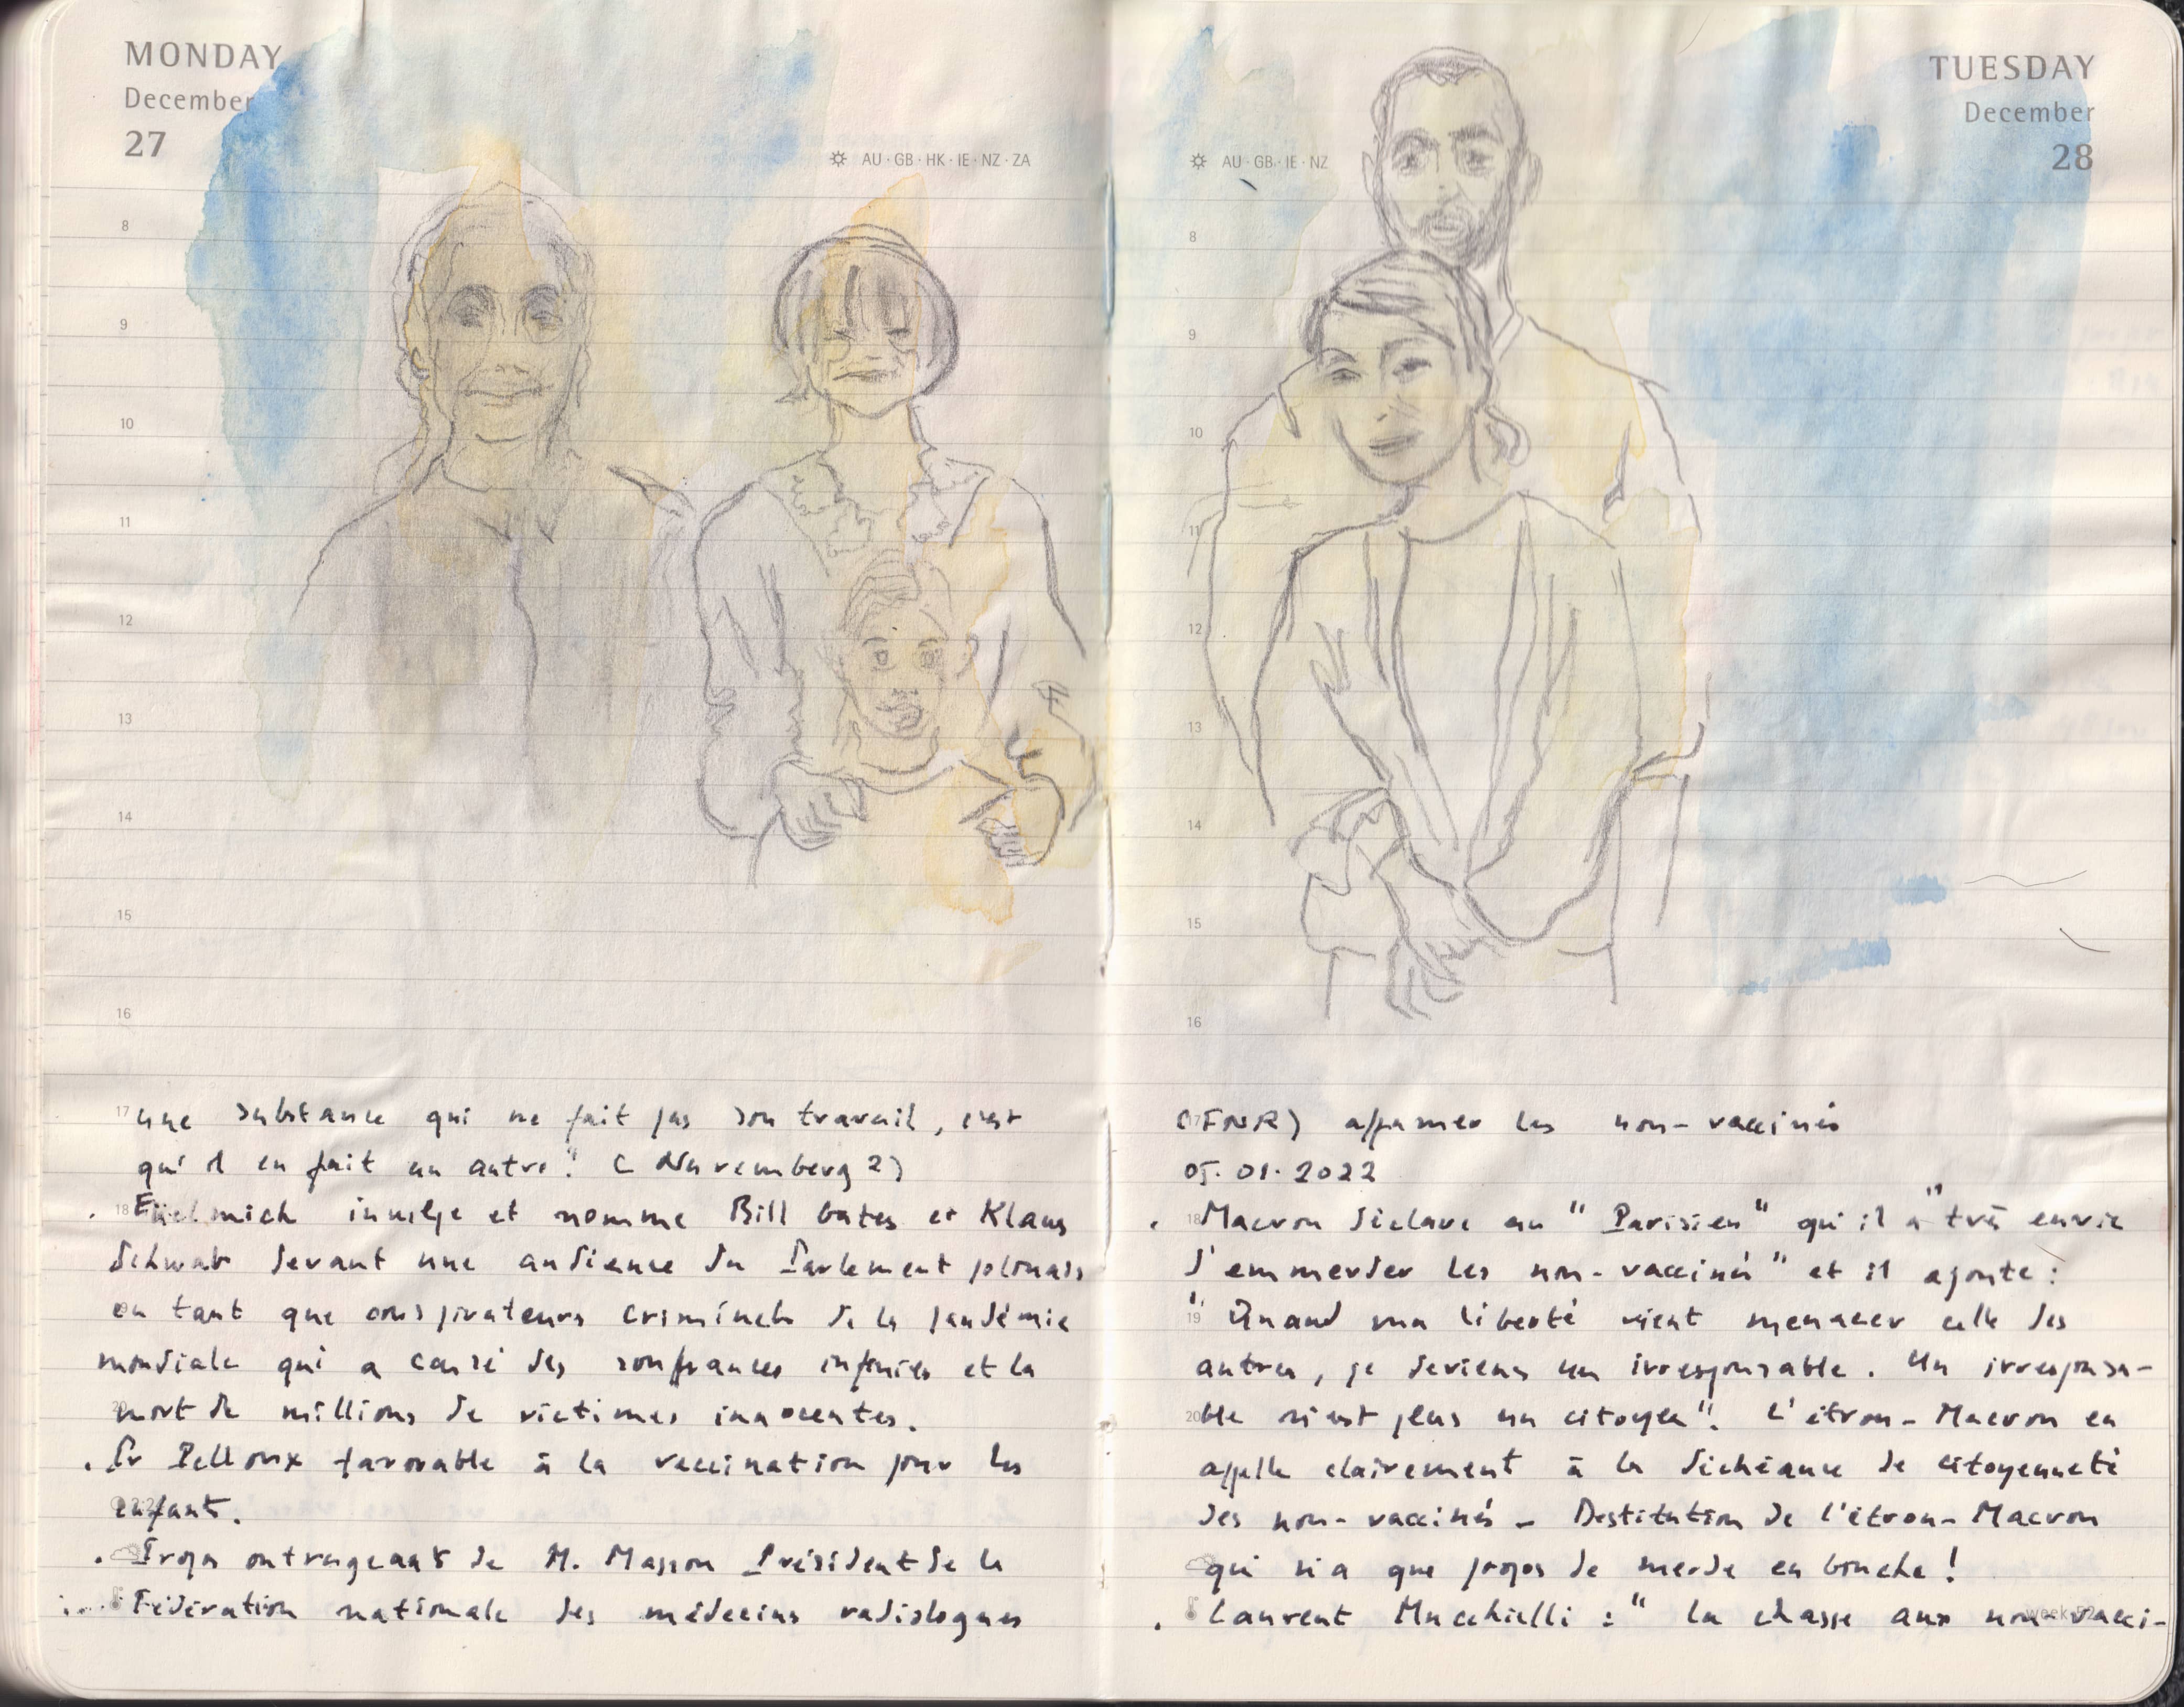 MONDAY
December
27
AU · GB · HK · IE · NZ · ZA
8
9
10
11
12
13
14
15
16
17 une substance qui ne fait pas son travail, c'est
qu'il en fait un autre." (Nuremberg 2)
. 18 Fuelmich inculpe et nomme Bill Gates et Klaus
Schwab devant une audience du Parlement polonais
en tant que conspirateurs criminels de la pandémie
mondiale qui a causé des souffrances infinies et la
mort de millions de victimes innocentes.
. Dr Pelloux favorable à la vaccination pour les
enfants.
. Propos outrageants de M. Masson Président de la
Fédération nationale des médecins radiologues
TUESDAY
December
28
AU · GB · IE · NZ
8
9
10
11
12
13
14
15
16
(FNR) affamer les non-vaccinés
05.01.2022
. 18 Macron déclare au "Parisien" qu'il a "très envie
d'emmerder les non-vaccinés" et il ajoute :
19 "Quand ma liberté vient menacer celle des
autres, je deviens un irresponsable. Un irresponsa-
20 ble n'est plus un citoyen". L'étron-Macron en
appelle clairement à la déchéance de citoyenneté
des non-vaccinés - Destitution de l'étron-Macron
qui n'a que propos de merde en bouche !
. Laurent Mucchielli : " la chasse aux non-vacci-